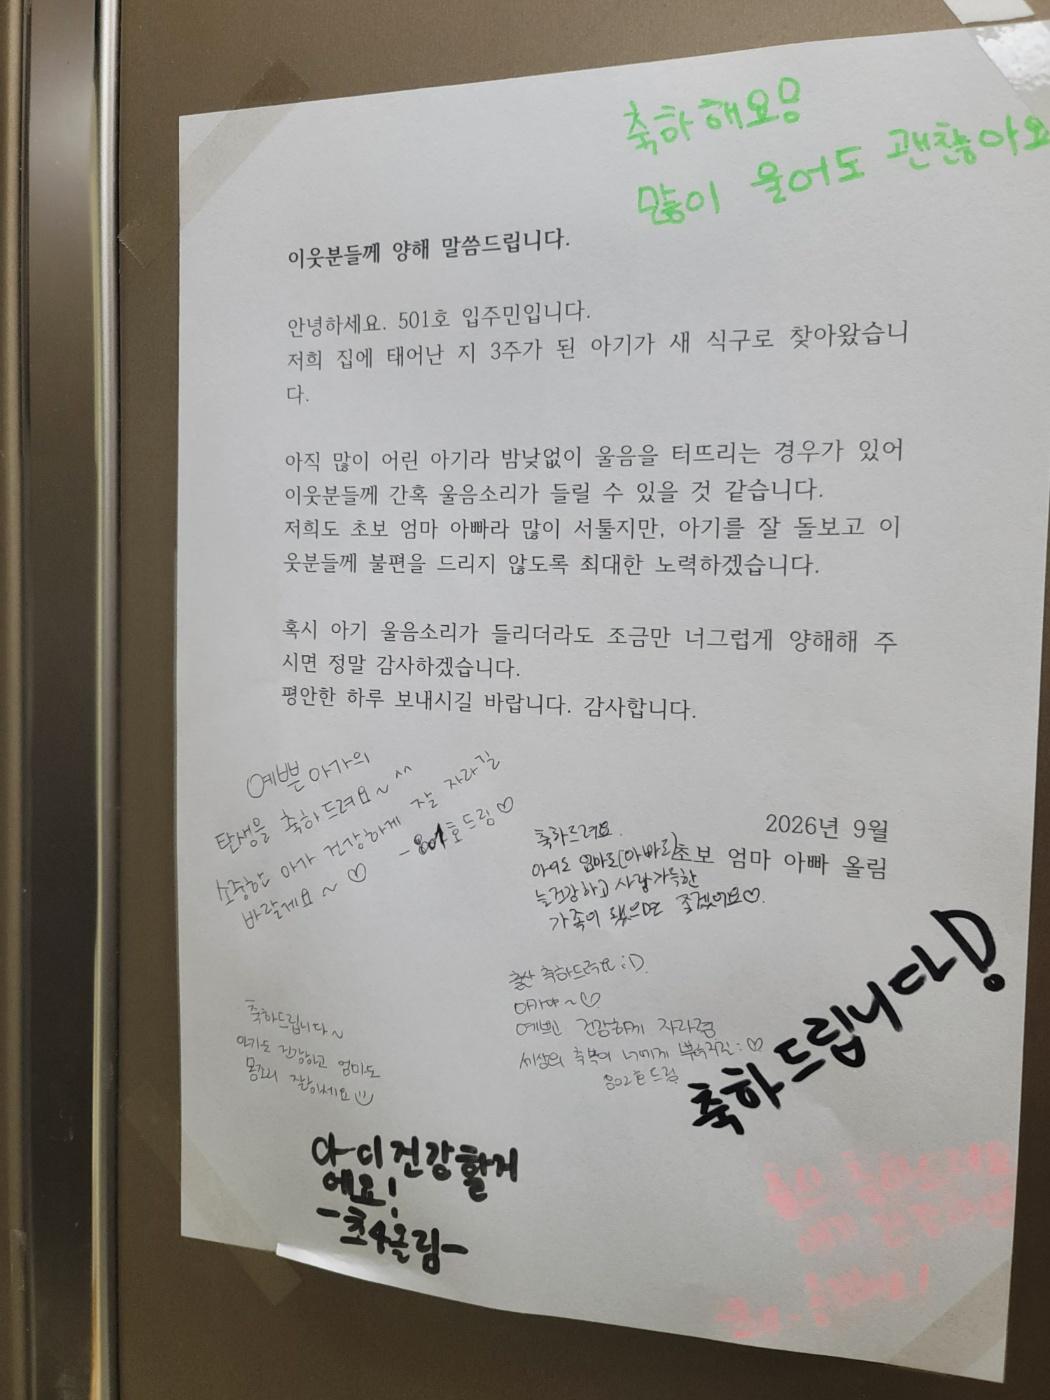 축하해요
많이 울어도 괜찮아요
이웃분들께 양해 말씀드립니다.
안녕하세요. 501호 입주민입니다.
저희 집에 태어난 지 3주가 된 아기가 새 식구로 찾아왔습니
다.
아직 많이 어린 아기라 밤낮없이 울음을 터뜨리는 경우가 있어
이웃분들께 간혹 울음소리가 들릴 수 있을 것 같습니다.
저희도 초보 엄마 아빠라 많이 서툴지만, 아기를 잘 돌보고 이
웃분들께 불편을 드리지 않도록 최대한 노력하겠습니다.
혹시 아기 울음소리가 들리더라도 조금만 너그럽게 양해해 주
시면 정말 감사하겠습니다.
평안한 하루 보내시길 바랍니다. 감사합니다.
2026년 9월
초보 엄마 아빠 올림
예쁜 아가의
탄생을 축하드려요~ ^^
소중한 아가 건강하게 잘 자라길
바랄게요~ ♡
-801호드림♡
축하드려요.
늘건강하고 사랑가득한
가족이 됐으면 좋겠어요♡.
출산 축하드려요 :D
아가야~♡
예쁘고 건강하게 자라렴
세상의 축복이 너에게
802호드림
축하드립니다~
아기도 건강하고 엄마도
몸조리 잘하세요
축하드립니다!
건강할거
에요!
-초4올림-